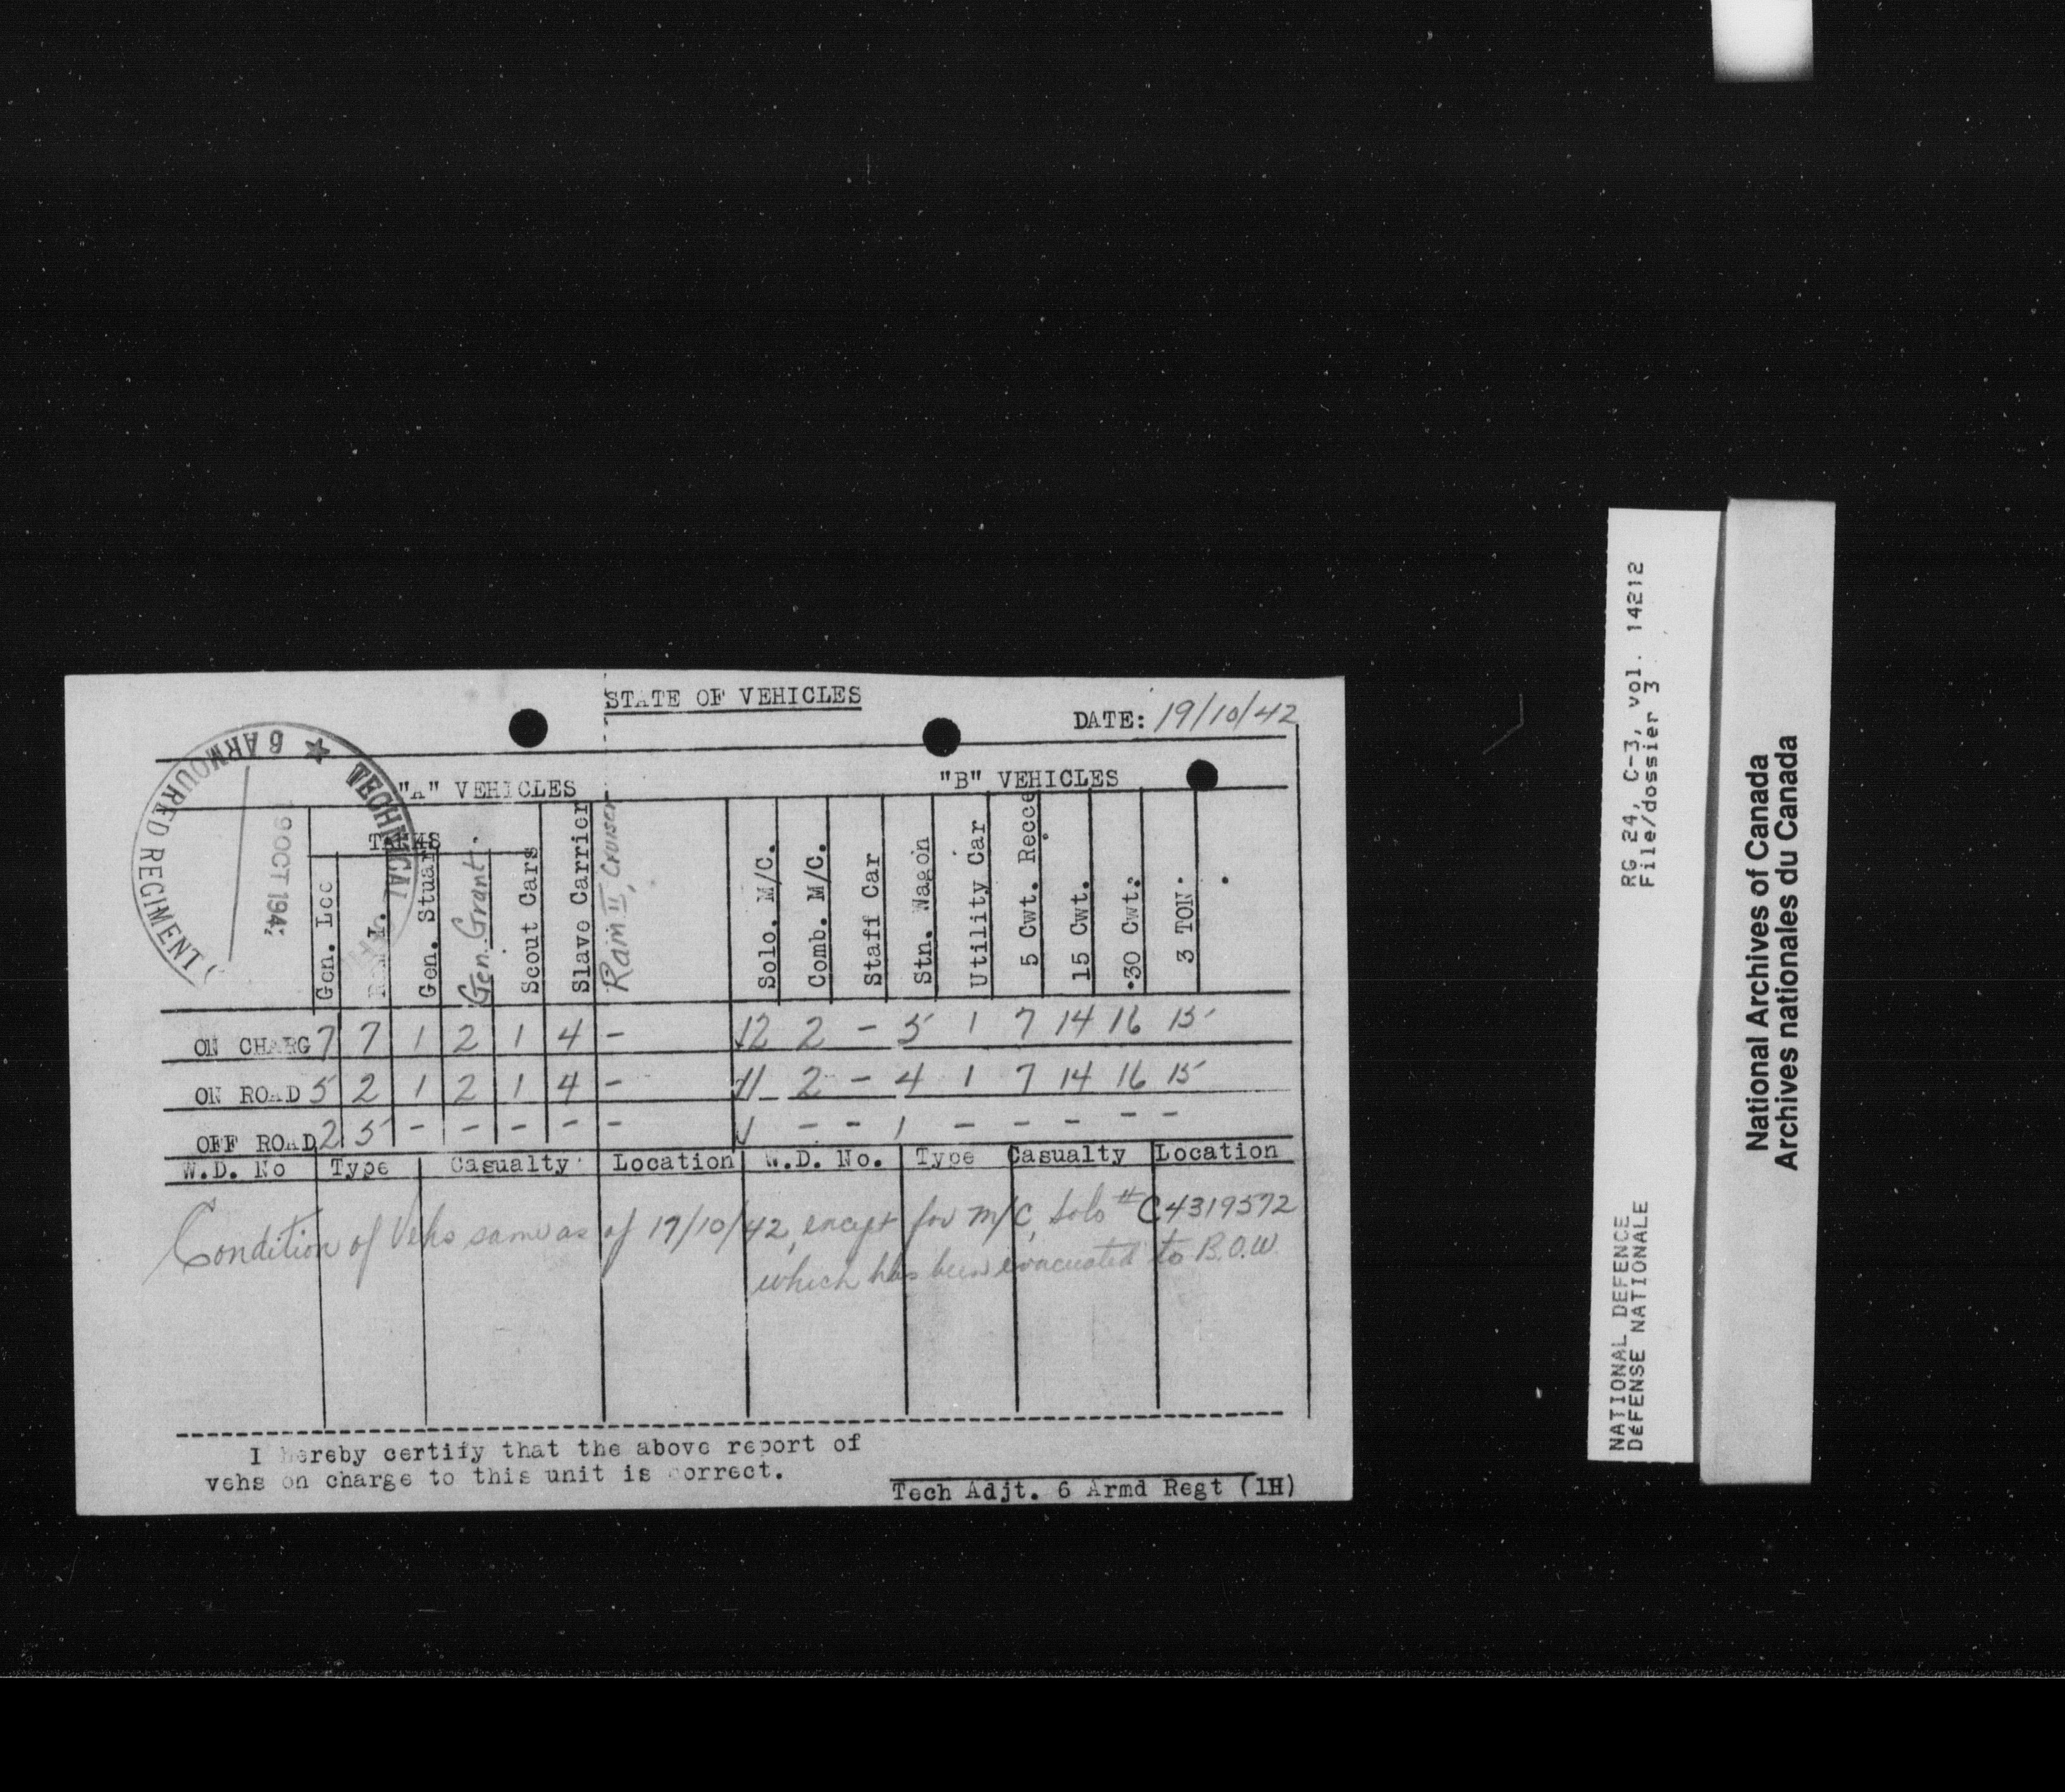 STATE OF VEHICLES
DATE: 19/10/42
6 ARMOURED REGIMENT (
TECHNICAL
19 OCT 194
"A" VEHICLES
"B" VEHICLES
TANKS
Gen. Lee
Ram I.
Gen. Stuart
Gen. Grant.
Scout Cars
Slave Carrier
Ram II, Cruiser
Solo. M/C.
Comb. M/C.
Staff Car
Stn. Wagon
Utility Car
5 Cwt. Recce
15 Cwt.
30 Cwt.
3 TON
ON CHARG 7 7 1 2 1 4 - 12 2 - 5 1 7 14 16 15
ON ROAD 5 2 1 2 1 4 - 11 2 - 4 1 7 14 16 15
OFF ROAD 2 5 - - - - - 1 - - 1 - - - - -
W.D. No Type Casualty Location W.D. No. Type Casualty Location
Condition of Vehs same as of 17/10/42, except for M/C, Solo # C4319572
which has been evacuated to B.O.W.
I hereby certify that the above report of
vehs on charge to this unit is correct.
Tech Adjt. 6 Armd Regt (1H)
RG 24, C-3, vol. 14212
File/dossier 3
NATIONAL DEFENCE
DÉFENSE NATIONALE
National Archives of Canada
Archives nationales du Canada